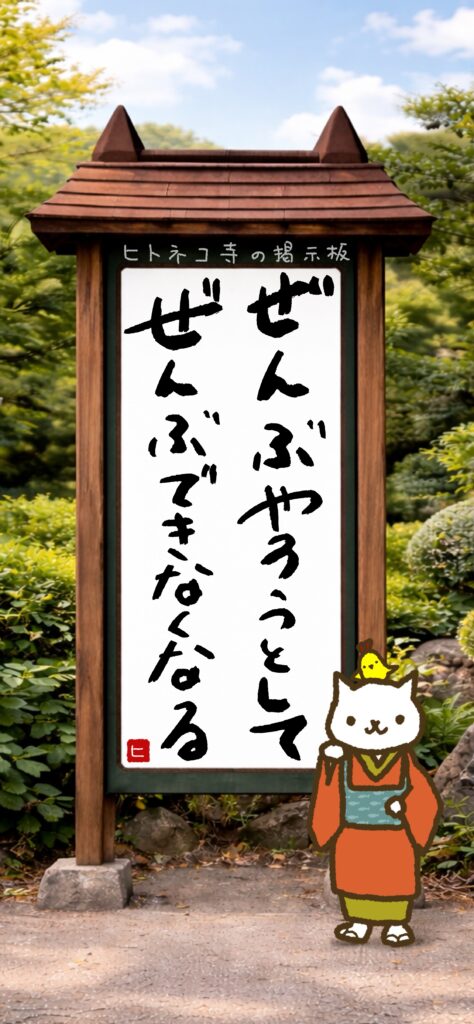 ヒトネコ寺の掲示板
ぜんぶやろうとして
ぜんぶできなくなる
ヒ